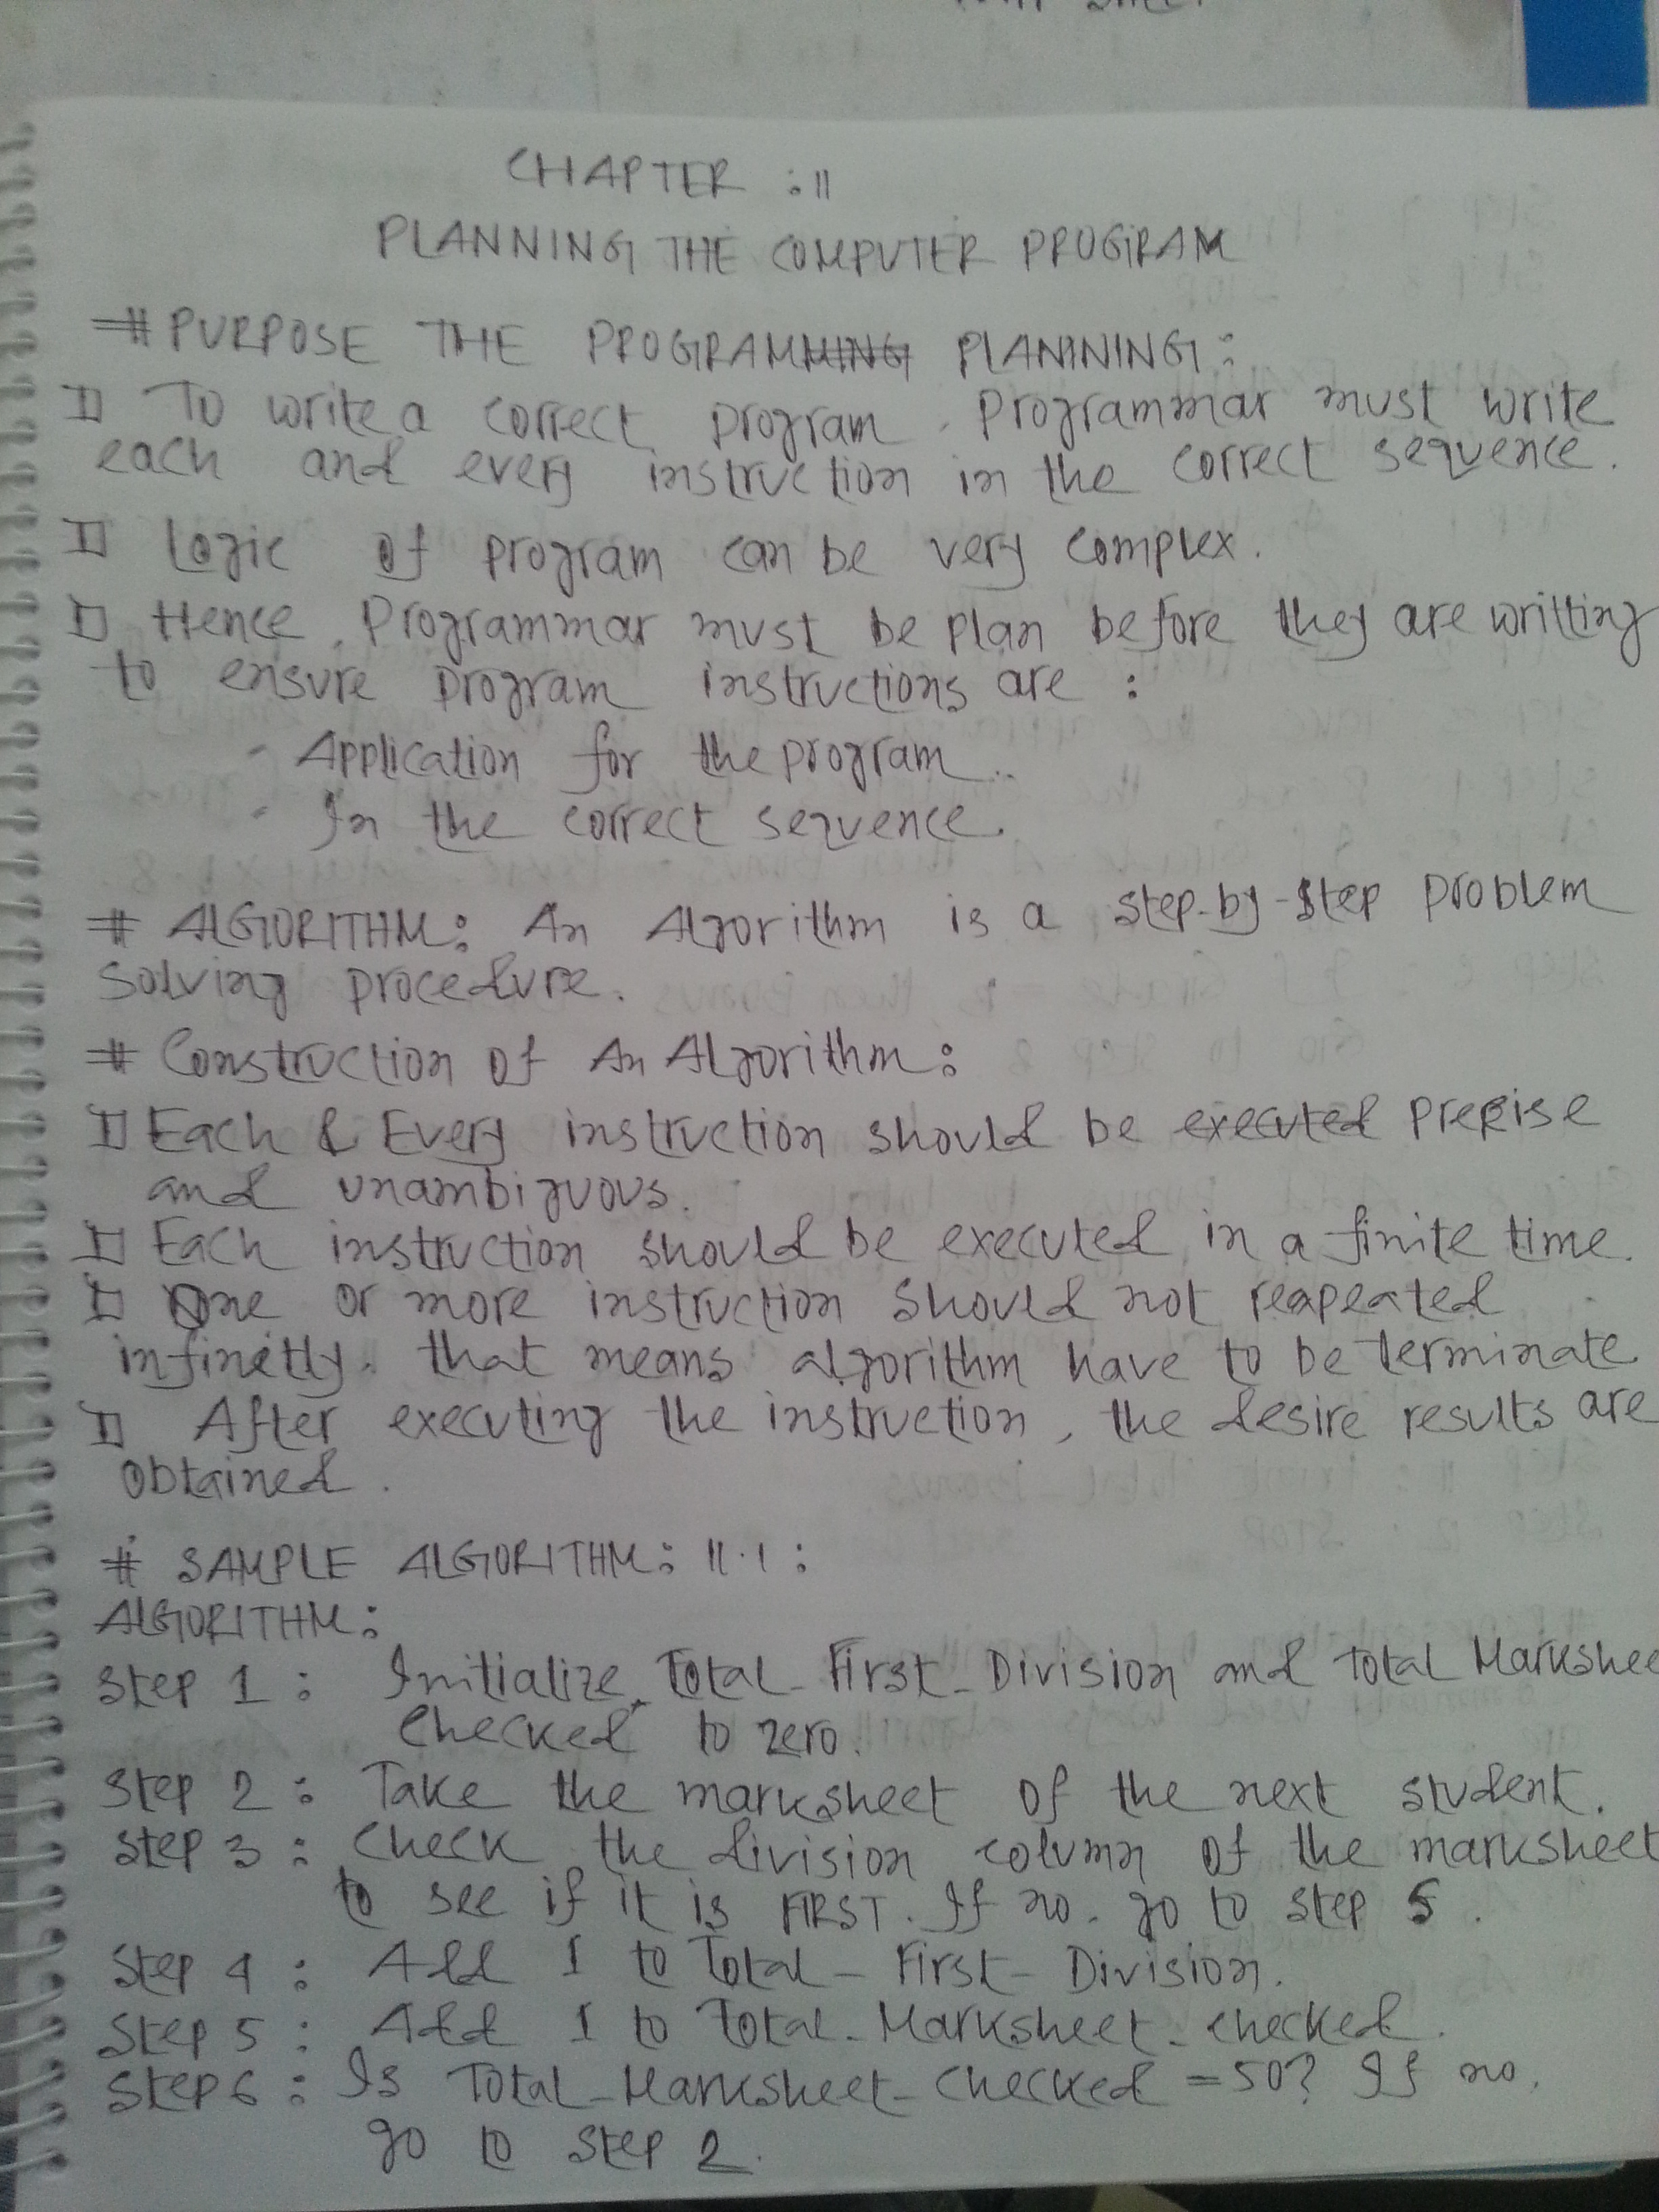 CHAPTER : 11
PLANNING THE COMPUTER PROGRAM
# PURPOSE THE PROGRAMMING PLANINING :
To write a correct program. Programmar must write
each and every instruction in the correct sequence.
Logic of program can be very complex.
Hence, Programmar must be plan before they are writting
to ensure program instructions are :
- Application for the program..
- In the correct sequence.
# ALGORITHM: An Algorithm is a step-by-step problem
solving procedure.
# Construction of An Algorithm :
Each & Every instruction should be executed precise
and unambiguous.
Each instruction should be executed in a finite time.
One or more instruction should not reapeated
infinetly. that means algorithm have to be terminate
After executing the instruction, the desire results are
obtained.
# SAMPLE ALGORITHM: 11.1 :
ALGORITHM:
Step 1 : Initialize Total_First_Division and total Markshee
Checked to zero.
Step 2 : Take the marksheet of the next student.
Step 3 : Check the division column of the marksheet
to see if it is FIRST. If no. go to step 5.
Step 4 : Add 1 to Total_First_Division.
Step 5 : Add 1 to Total_Marksheet_checked.
Step 6 : Is Total_Marksheet_Checked = 50? If no,
go to step 2.